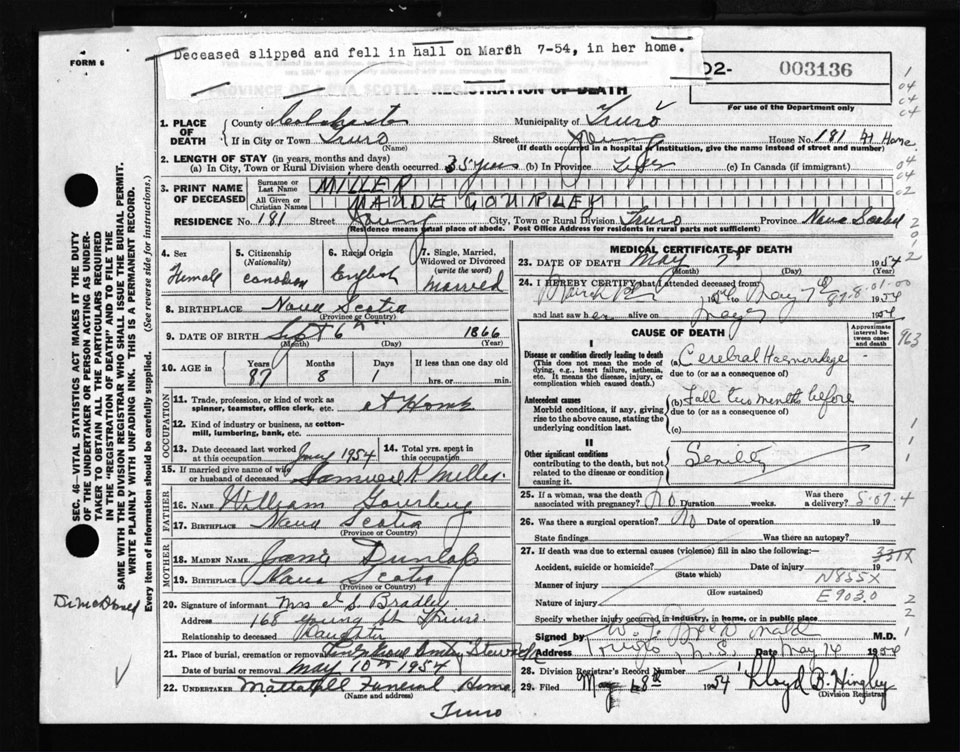 Deceased slipped and fell in hall on March 7-54, in her home.
FORM 6
PROVINCE OF NOVA SCOTIA REGISTRATION OF DEATH
02- 003136
For use of the Department only
1. PLACE OF DEATH County of Colchester Municipality of Truro
If in City or Town Truro (Name) Street Young House No. 181 At Home
(If death occurred in a hospital or institution, give the name instead of street and number)
2. LENGTH OF STAY (in years, months and days)
(a) In City, Town or Rural Division where death occurred 35 years (b) In Province Life (c) In Canada (if immigrant)
3. PRINT NAME OF DECEASED Surname or Last Name MILLER
All Given or Christian Names MAUDE GOURLEY
RESIDENCE No. 181 Street Young City, Town or Rural Division Truro Province Nova Scotia
(Residence means usual place of abode. Post Office Address for residents in rural parts not sufficient)
4. Sex Female
5. Citizenship (Nationality) Canadian
6. Racial Origin English
7. Single, Married, Widowed or Divorced (write the word) Married
8. BIRTHPLACE Nova Scotia
(Province or Country)
9. DATE OF BIRTH Sept 6th 1866
(Month) (Day) (Year)
10. AGE in Years 87 Months 8 Days 1 If less than one day old
hrs. or min.
OCCUPATION
11. Trade, profession, or kind of work as spinner, teamster, office clerk, etc. at Home
12. Kind of industry or business, as cotton-mill, lumbering, bank, etc.
13. Date deceased last worked at this occupation 1954 14. Total yrs. spent in this occupation
15. If married give name of wife or husband of deceased Samuel R. Miller
FATHER
16. Name William Gourley
17. BIRTHPLACE Nova Scotia
(Province or Country)
MOTHER
18. MAIDEN NAME Janie Dunlap
19. BIRTHPLACE Nova Scotia
(Province or Country)
20. Signature of informant Mrs I. S. Bradley
Address 168 Young St Truro
Relationship to deceased Daughter
21. Place of burial, cremation or removal
Date of burial or removal May 10th 1954
22. UNDERTAKER Mattatall Funeral Home
(Name and address)
Truro
MEDICAL CERTIFICATE OF DEATH
23. DATE OF DEATH May 7th 1954
(Month) (Day) (Year)
24. I HEREBY CERTIFY that I attended deceased from
March 1954 to May 7th 1954
and last saw her alive on May 7 1954
CAUSE OF DEATH
Approximate interval between onset and death
I
Disease or condition directly leading to death (a) Cerebral Haemorrhage
(This does not mean the mode of dying, e.g., heart failure, asthenia, etc. It means the disease, injury, or complication which caused death.)
due to (or as a consequence of)
Antecedent causes (b) Fall two months before
Morbid conditions, if any, giving rise to the above cause, stating the underlying condition last.
due to (or as a consequence of)
(c)
II
Other significant conditions contributing to the death, but not related to the disease or condition causing it. Senility
25. If a woman, was the death associated with pregnancy? No Duration weeks. Was there a delivery?
26. Was there a surgical operation? No Date of operation 19
State findings Was there an autopsy?
27. If death was due to external causes (violence) fill in also the following:
Accident, suicide or homicide? (State which) Date of injury 19
Manner of injury (How sustained) N855X
Nature of injury E903.0
Specify whether injury occurred in industry, in home, or in public place
Signed by M.D.
Address Truro N.S. Date May 1954
28. Division Registrar's Record Number
29. Filed May 8th 1954 Lloyd B. Hingley
(Division Registrar)
SEC. 46—VITAL STATISTICS ACT MAKES IT THE DUTY OF THE UNDERTAKER OR PERSON ACTING AS UNDERTAKER TO OBTAIN ALL THE PARTICULARS REQUIRED IN THE "REGISTRATION OF DEATH" AND TO FILE THE SAME WITH THE DIVISION REGISTRAR WHO SHALL ISSUE THE BURIAL PERMIT.
WRITE PLAINLY WITH UNFADING INK. THIS IS A PERMANENT RECORD.
Every item of information should be carefully supplied. (See reverse side for instructions.)